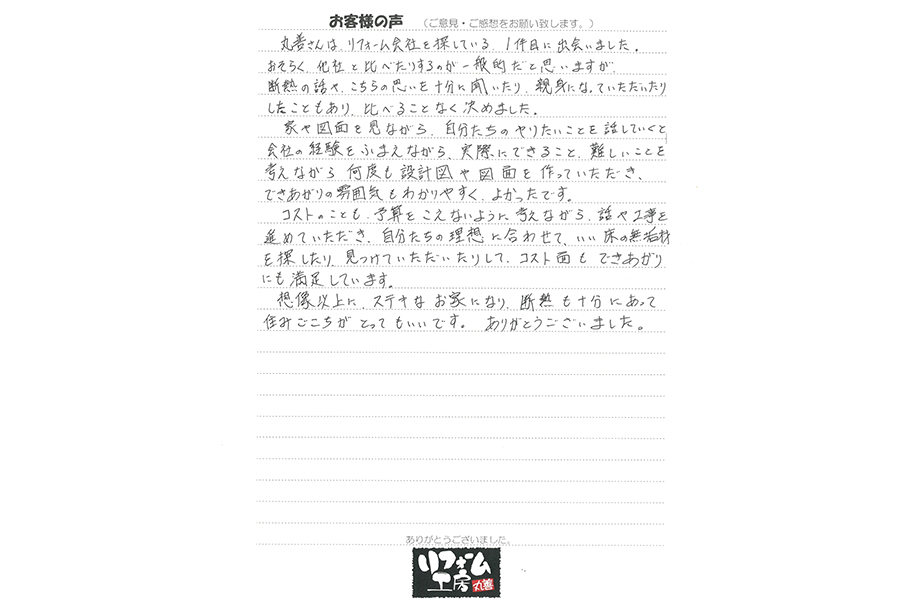 お客様の声 （ご意見・ご感想をお願い致します。）
丸善さんは、リフォーム会社を探している、1件目に出会いました。
おそらく、他社と比べたりするのが一般的だと思いますが、
断熱の話や、こちらの思いを十分に聞いたり、親身になっていただいたり
したこともあり、比べることなく決めました。
家や図面を見ながら、自分たちのやりたいことを話していくと、
会社の経験をふまえながら、実際にできること、難しいことを
考えながら何度も設計図や図面を作っていただき、
できあがりの雰囲気もわかりやすく、よかったです。
コストのことも、予算をこえないように考えながら、話や工事を
進めていただき、自分たちの理想に合わせて、いい床の無垢材
を探したり、見つけていただいたりして、コスト面もできあがり
にも満足しています。
想像以上に、ステキなお家になり、断熱も十分にあって
住みごこちがとってもいいです。 ありがとうございました。
ありがとうございました。
リフォーム
工房 丸善